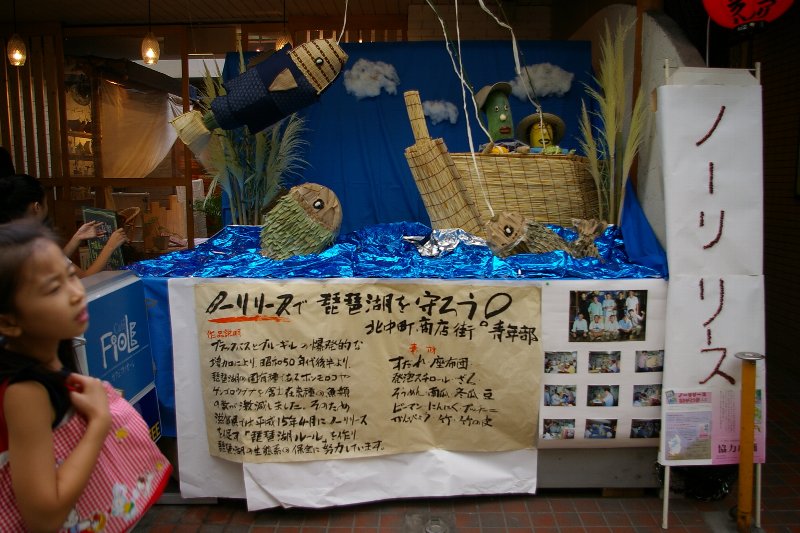 ノーリリースで琵琶湖を守ろう
北中町商店街青年部
作品説明
ブラックバスとブルーギルの爆発的な
増加により、昭和50年代後半より、
琵琶湖の固有種であるホンモロコや
ゲンゴロウブナを含む在来種の魚類
の数が激減しました。そのため
滋賀県では平成15年4月にノーリリース
を促す「琵琶湖ルール」を作り
琵琶湖の生態系の保全に努力しています。
すだれ 座布団
発泡スチロール ざる
そうめん 南瓜 冬瓜 豆
ピーマン にんにく
かんぴょう 竹 竹の皮
ノーリリース
協力
FIOLE